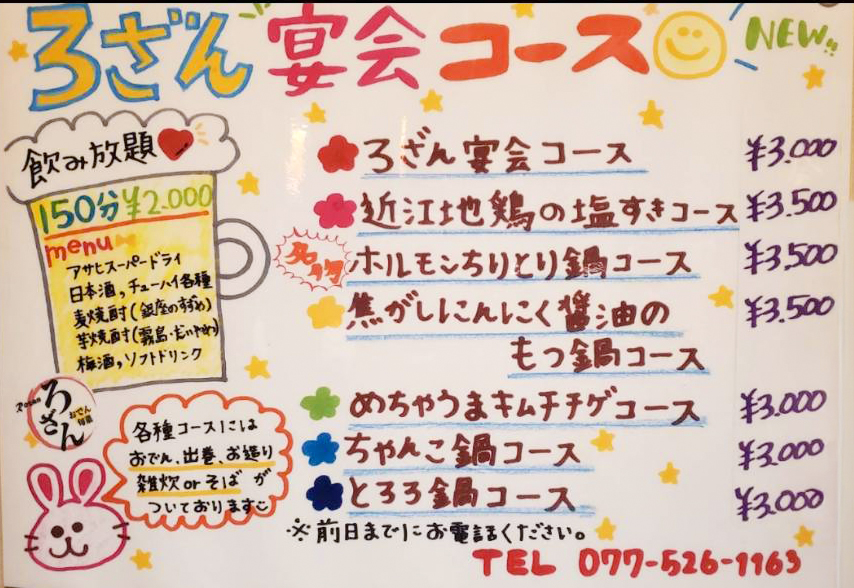 ろざん宴会コース
NEW!!
飲み放題
150分¥2.000
menu
アサヒスーパードライ
日本酒,チューハイ各種
麦焼酎(銀座のすずめ)
芋焼酎(霧島・だいやめ)
梅酒,ソフトドリンク
ろざん宴会コース ¥3.000
近江地鶏の塩すきコース ¥3.500
名物 ホルモンちりとり鍋コース ¥3,500
焦がしにんにく醤油の ¥3,500
もつ鍋コース
めちゃうまキムチチゲコース ¥3.000
ちゃんこ鍋コース ¥3,000
とろろ鍋コース ¥3,000
※前日までにお電話ください。
TEL 077-526-1163
Rozan
ろざん
おでん
各種コースには
おでん、出巻、お造り
雑炊orそばが
ついております